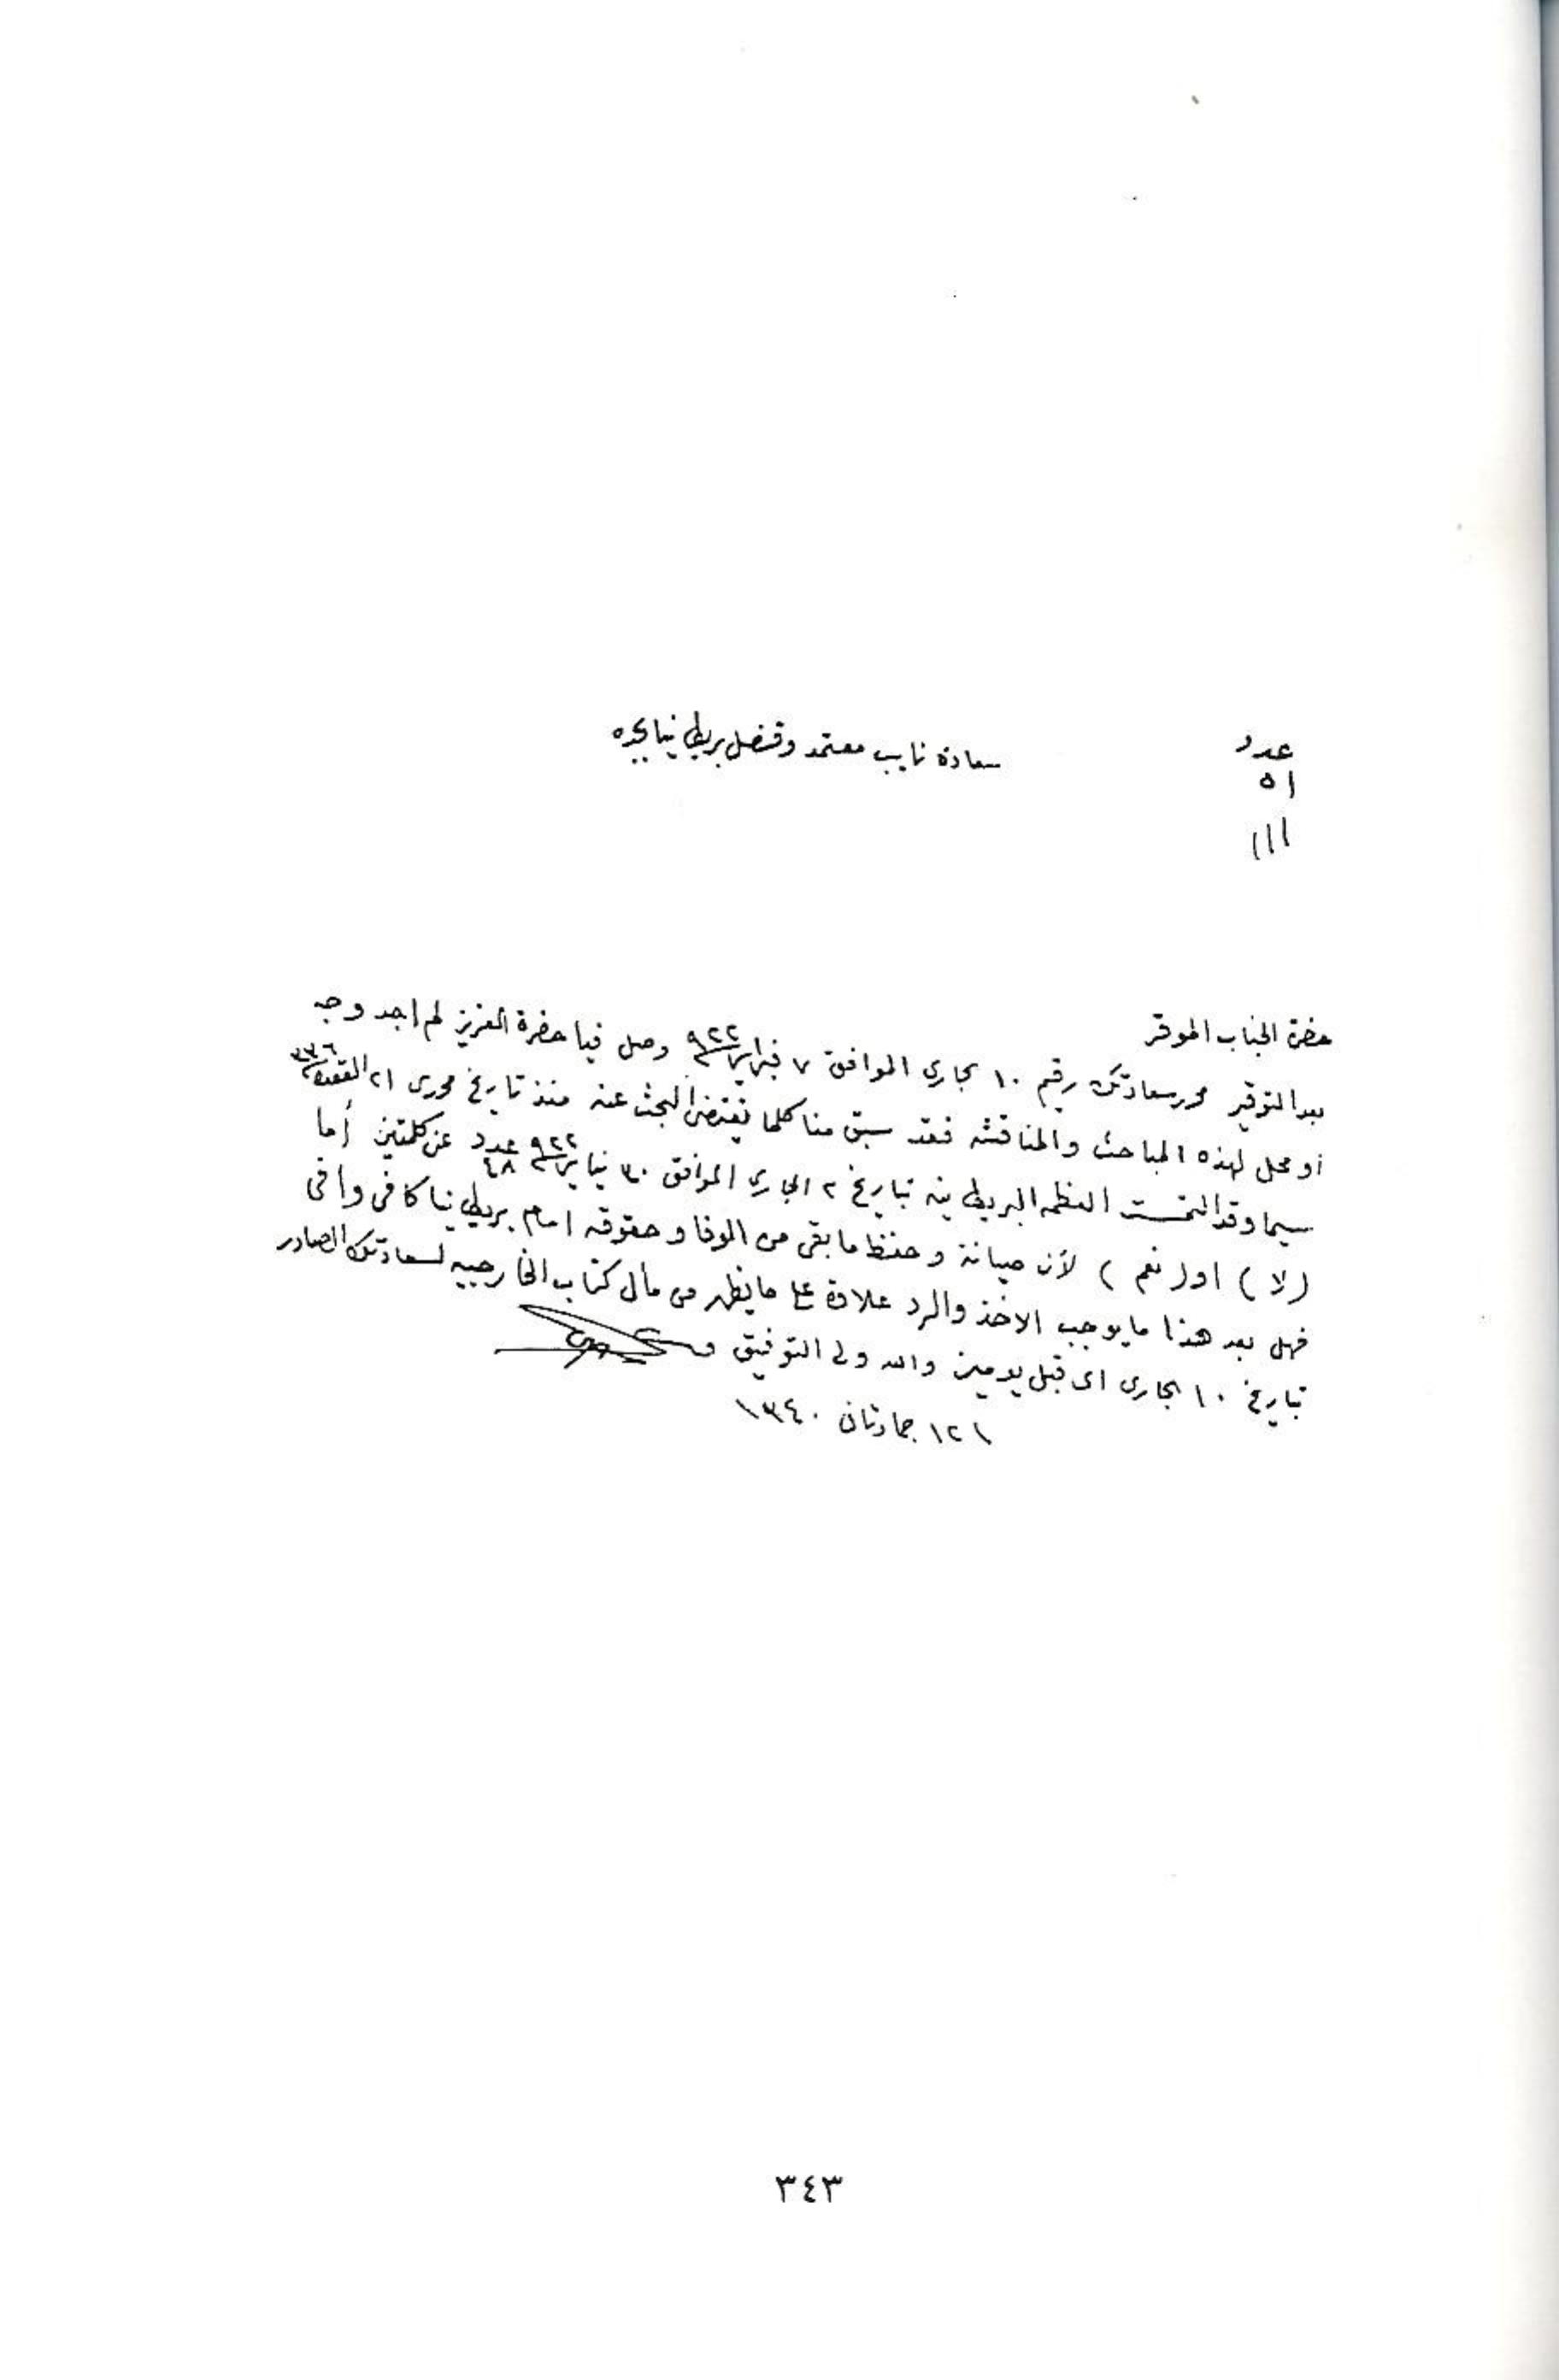 عدد
٥١
١١١
سعادة نايب معتمد وقنصل بريطانيا بجده
حضرة الجناب الموقر
بعد التوقير محررسعادتك رقيم ١٠ جاري الموافق ٧ فبراير ٩٢٢ وصل فيا حضرة العزيز لم اجد وجه
او محل لهذه المباحث والمناقشه فقد سبق منا كلما يقتضى البحث عنه منذ تاريخ محررى ٢١ القعده ٣٣٦
سيما وقد التمست العظمه البريطانيه بتاريخ ٢ الجاري الموافق ٣٠ نياير ٩٢٢ عدد ٤٨ عن كلمتين أما
(لا) او (نعم) لأن صيانة وحفظ ما بقى من الوفا وحقوقه امام بريطانيا كافى وافى
فهل بعد هذا ما يوجب الاخذ والرد علاوة على ما يظهر من مأل كتاب الخارجيه لسعادتك الصادر
بتاريخ ١٠ الجارى اى قبل يومين والله ولى التوفيق
١٢ جمادثانى ١٣٤٠
٣٤٣